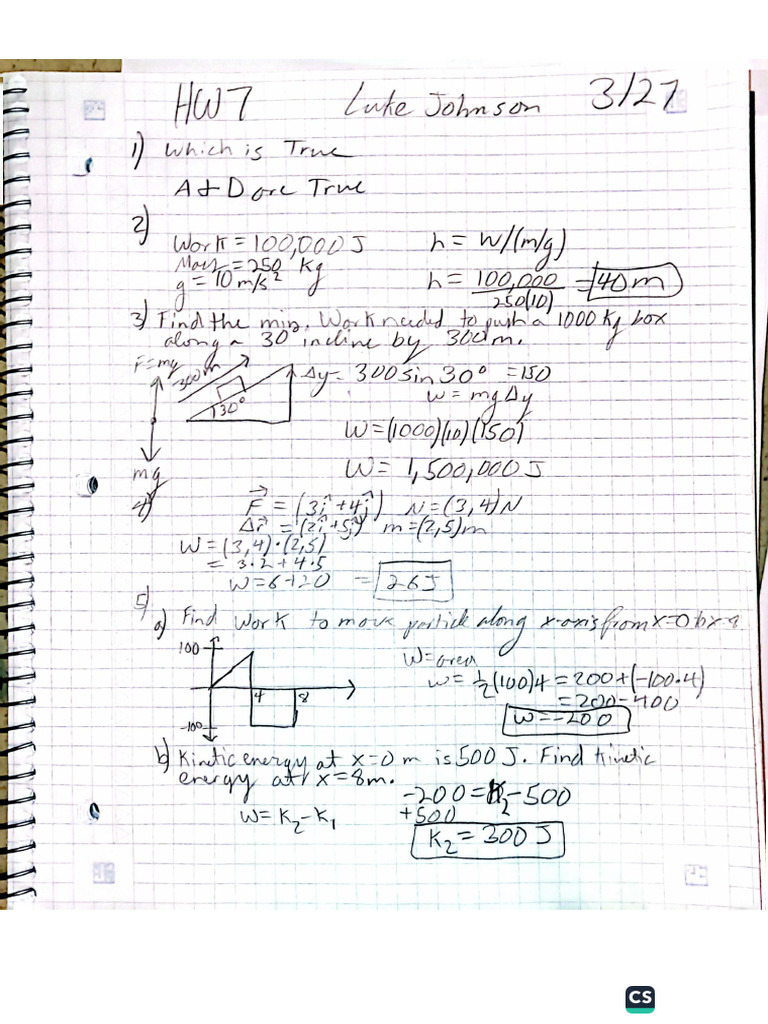 HW7 Luke Johnson 3/27
1) Which is True
A + D are True
2)
Work = 100,000 J h = W/(m/g)
Mass = 250 Kg
g = 10 m/s² h = 100,000 / 250(10) = 40 m
3) Find the min. Work needed to push a 1000 Kg box
along a 30° incline by 300m.
F = mg
300 m
30°
mg
Δy = 300 sin 30° = 150
W = mgΔy
W = (1000)(10)(150)
W = 1,500,000 J
4) F⃗ = (3î + 4ĵ) N = (3,4) N
Δr⃗ = (2î + 5ĵ) m = (2,5) m
W = (3,4)·(2,5)
= 3·2 + 4·5
W = 6 + 20 = 26 J
5)
a) Find work to move particle along x-axis from x=0 to x=8
100
4 8
-100
W = area
W = ½(100)4 = 200 + (-100·4)
= 200 - 400
W = -200
b) Kinetic energy at x = 0 m is 500 J. Find kinetic
energy at x = 8m.
W = K₂ - K₁
-200 = K₂ - 500
+500
K₂ = 300 J
CS